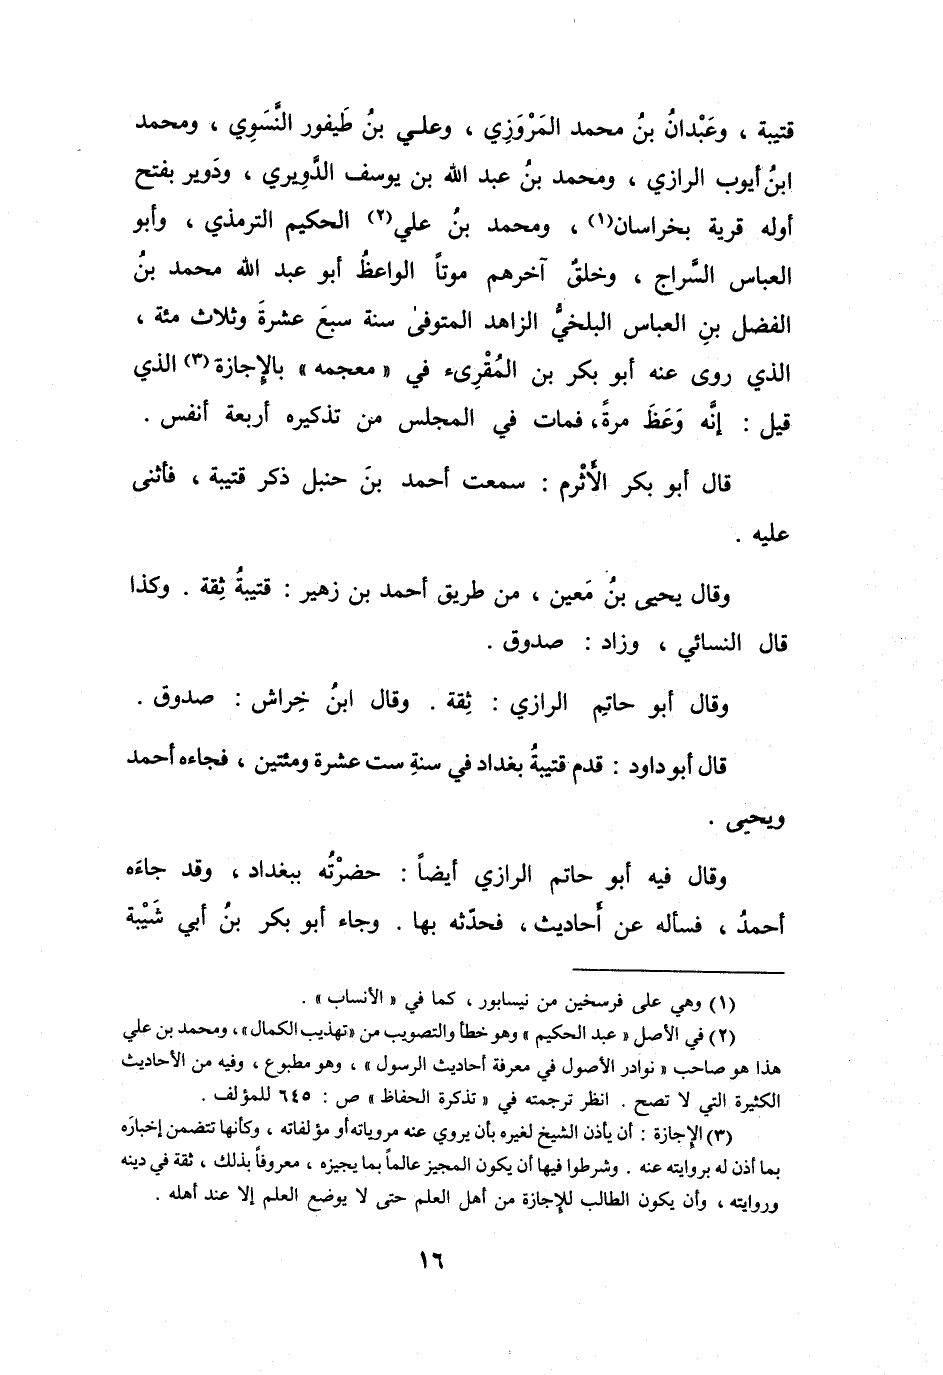 قتيبة ، وعَبْدانُ بنُ محمد المَرْوَزِي ، وعلـي بنُ طَيفور النَّسَوِي ، ومحمد
ابنُ أيوب الرازي ، ومحمد بنُ عبد الله بن يوسف الدَّويري ، ودَوير بفتح
أوله قرية بخراسان(١) ، ومحمد بنُ علي(٢) الحكيم الترمذي ، وأبو
العباس السَّراج ، وخلقٌ آخرهم موتاً الواعظُ أبو عبد الله محمد بنُ
الفضل بنِ العباس البلخيُّ الزاهد المتوفىٰ سنة سبعَ عشرةَ وثلاث مئة ،
الذي روى عنه أبو بكر بن المُقْرِىء في « معجمه » بالإِجازة(٣) الذي
قيل : إنَّه وَعَظَ مرةً، فمات في المجلس من تذكيره أربعة أنفس .
قال أبو بكر الأَثْرم : سمعت أحمد بنَ حنبل ذكر قتيبة ، فأثنى
عليه .
وقال يحيى بنُ مَعين ، من طريق أحمد بن زهير : قتيبةُ ثِقة . وكذا
قال النسائي ، وزاد : صدوق .
وقال أبو حاتِم الرازي : ثِقة . وقال ابنُ خِراش : صدوق .
قال أبو داود : قدم قتيبةُ بغداد في سنةِ ست عشرة ومئتين ، فجاءه أحمد
ويحيى .
وقال فيه أبو حاتم الرازي أيضاً : حضرْتُه ببغداد ، وقد جاءَه
أحمدُ ، فسأله عن أَحاديث ، فحدّثه بها . وجاء أبو بكر بنُ أبي شَيْبة
(١) وهي على فرسخين من نيسابور ، كما في « الأنساب » .
(٢) في الأصل « عبد الحكيم » وهو خطأ والتصويب من «تهذيب الكمال»، ومحمد بن علي
هذا هو صاحب « نوادر الأصول في معرفة أحاديث الرسول » ، وهو مطبوع ، وفيه من الأحاديث
الكثيرة التي لا تصح . انظر ترجمته في « تذكرة الحفاظ » ص : ٦٤٥ للمؤلف .
(٣) الإِجازة : أن يأذن الشيخ لغيره بأن يروي عنه مروياته أو مؤلفاته ، وكأنها تتضمن إخبارَه
بما أذن له بروايته عنه . وشرطوا فيها أن يكون المجيز عالماً بما يجيزه ، معروفاً بذلك ، ثقة في دينه
وروايته ، وأن يكون الطالب للإِجازة من أهل العلم حتى لا يوضع العلم إلا عند أهله .
١٦